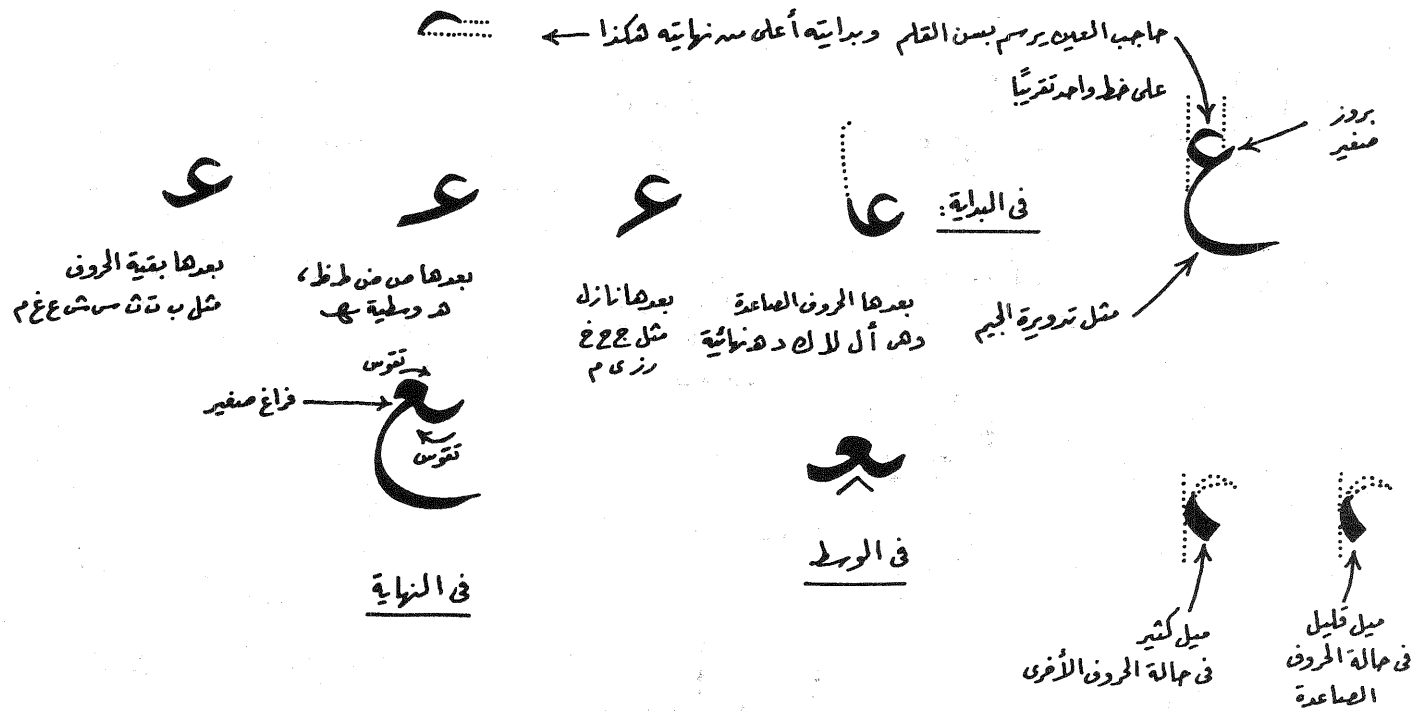 حاجب العين يرسم بسن القلم وبدايته أعلى من نهايته هكذا
على خط واحد تقريبًا
بروز
صغير
ع
مثل تدويرة الجيم
فى البداية :
عا
بعدها الحروف الصاعدة
وهى أ ل لا ك د ه نهائية
بعدها نازل
مثل ج ح خ
ر ز ى م
بعدها ص ض ط ظ ،
هـ وسطية ـهـ
بعدها بقية الحروف
مثل ب ت ث س ش ع غ م
تقوس
فراغ صغير
ـع
تقوس
فى النهاية
ـعـ
فى الوسط
ميل كثير
فى حالة الحروف الأخرى
ميل قليل
فى حالة الحروف
الصاعدة